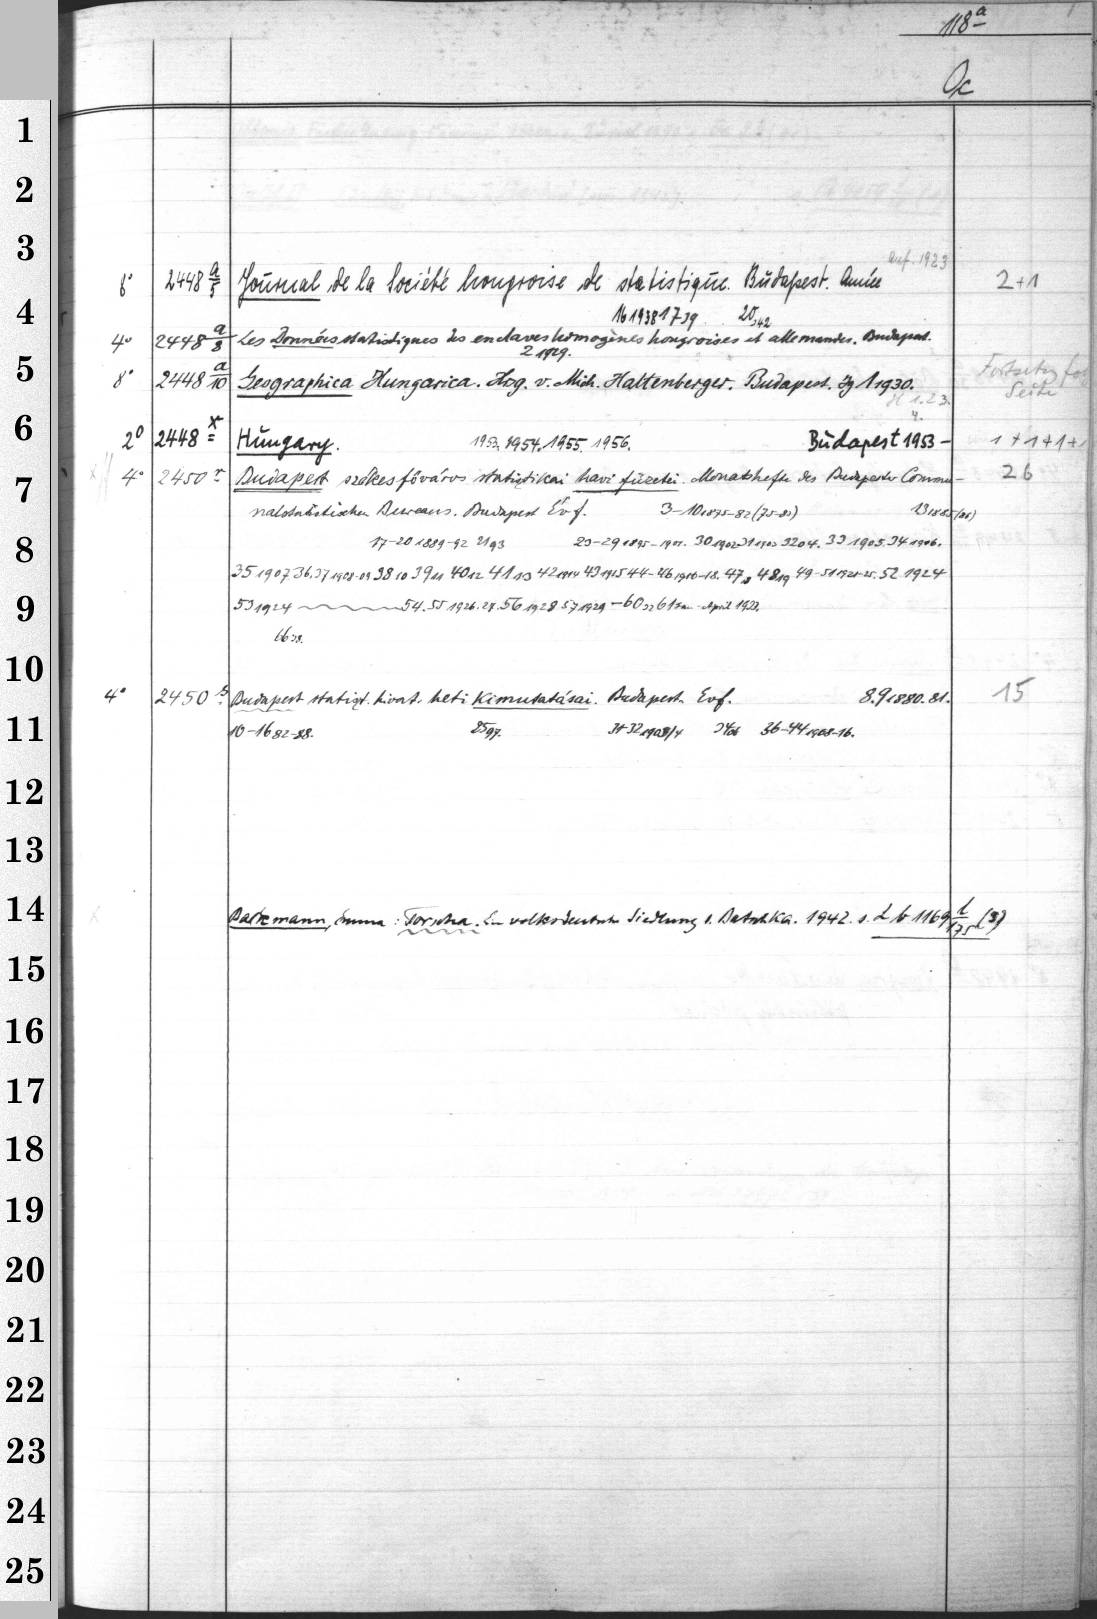 118a
Qc
auf. 1923
8° 2448 a/5 Journal de la Société hongroise de statistique. Budapest. Année 2+1
16 1938 17 39 20,42
4° 2448 a/8 Les Données statistiques des enclaves homogènes hongroises et allemandes. Budapest.
2 1929.
8° 2448 a/10 Geographica Hungarica. Hrg. v. Mich. Haltenberger. Budapest. Jg 1 1930. Fortsetzg folg Seite
H 1.2 3.
4.
2° 2448 x Hungary. 1953. 1954. 1955. 1956. Budapest 1953 – 1+1+1+1
4° 2450 r Budapest székesfőváros statistikai havi füzetei. Monatshefte des Budapester Commu- 26
nalstatistischen Bureaus. Budapest Évf. 3-10 1875-82 (75-81) 13 1885 (81)
17-20 1889-92 21 93 23-29 1895-1901. 30 1902 31 1903 32 04. 33 1905. 34 1906.
35 1907 36.37 1908-09 38 10 39 11 40 12 41 13 42 1914 43 1915 44-46 1916-18. 47 19 48 19 49-51 1921-25. 52 1924
53 1924 54. 55 1926. 27. 56 1928 57 1929 – 60 32 61 Jan - April 1933.
66 38.
4° 2450 s Budapest statiszt. hivat. heti Kimutatásai. Budapest. Evf. 8.9 1880. 81. 15
10-16 82-88. 25 97. 31-32 1903/4 34 06 36-44 1908-16.
Emma : Torscha. Ein volksdeutsche Siedlung i. Batschka. 1942. s. Lb 1169 l/175 (3)
1
2
3
4
5
6
7
8
9
10
11
12
13
14
15
16
17
18
19
20
21
22
23
24
25